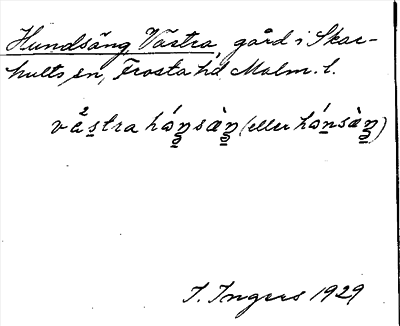 Hundsäng, Västra, gård i Skar-
hults sn, Frosta hd. Malm. l.
vå̀stra hóŋsàŋ (eller hónsàŋ)
I. Ingers 1929